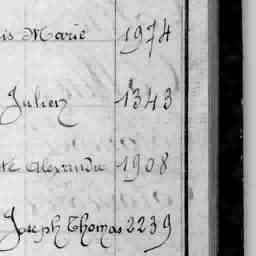 is Marie 1974
Julien 1343
te Alexandre 1908
Joseph Thomas 2239